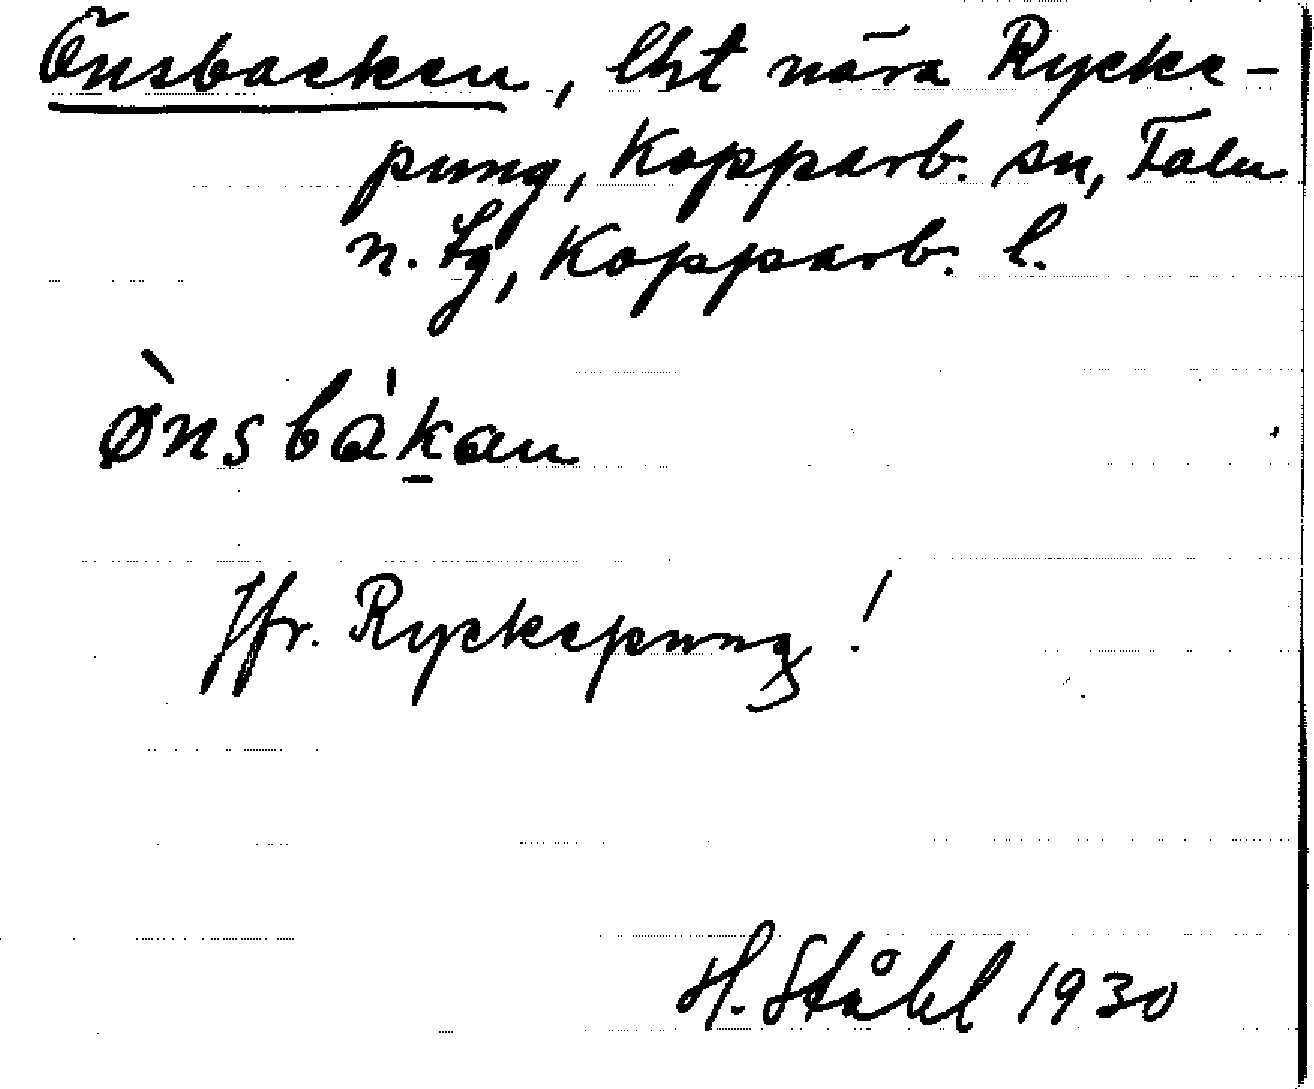 Önsbacken, lht nära Rycke-
pung, Kopparb. sn, Falu
n. tg, Kopparb. l.
ø̀nsbák̠an
Jfr. Ryckepung!
H. Ståhl 1930